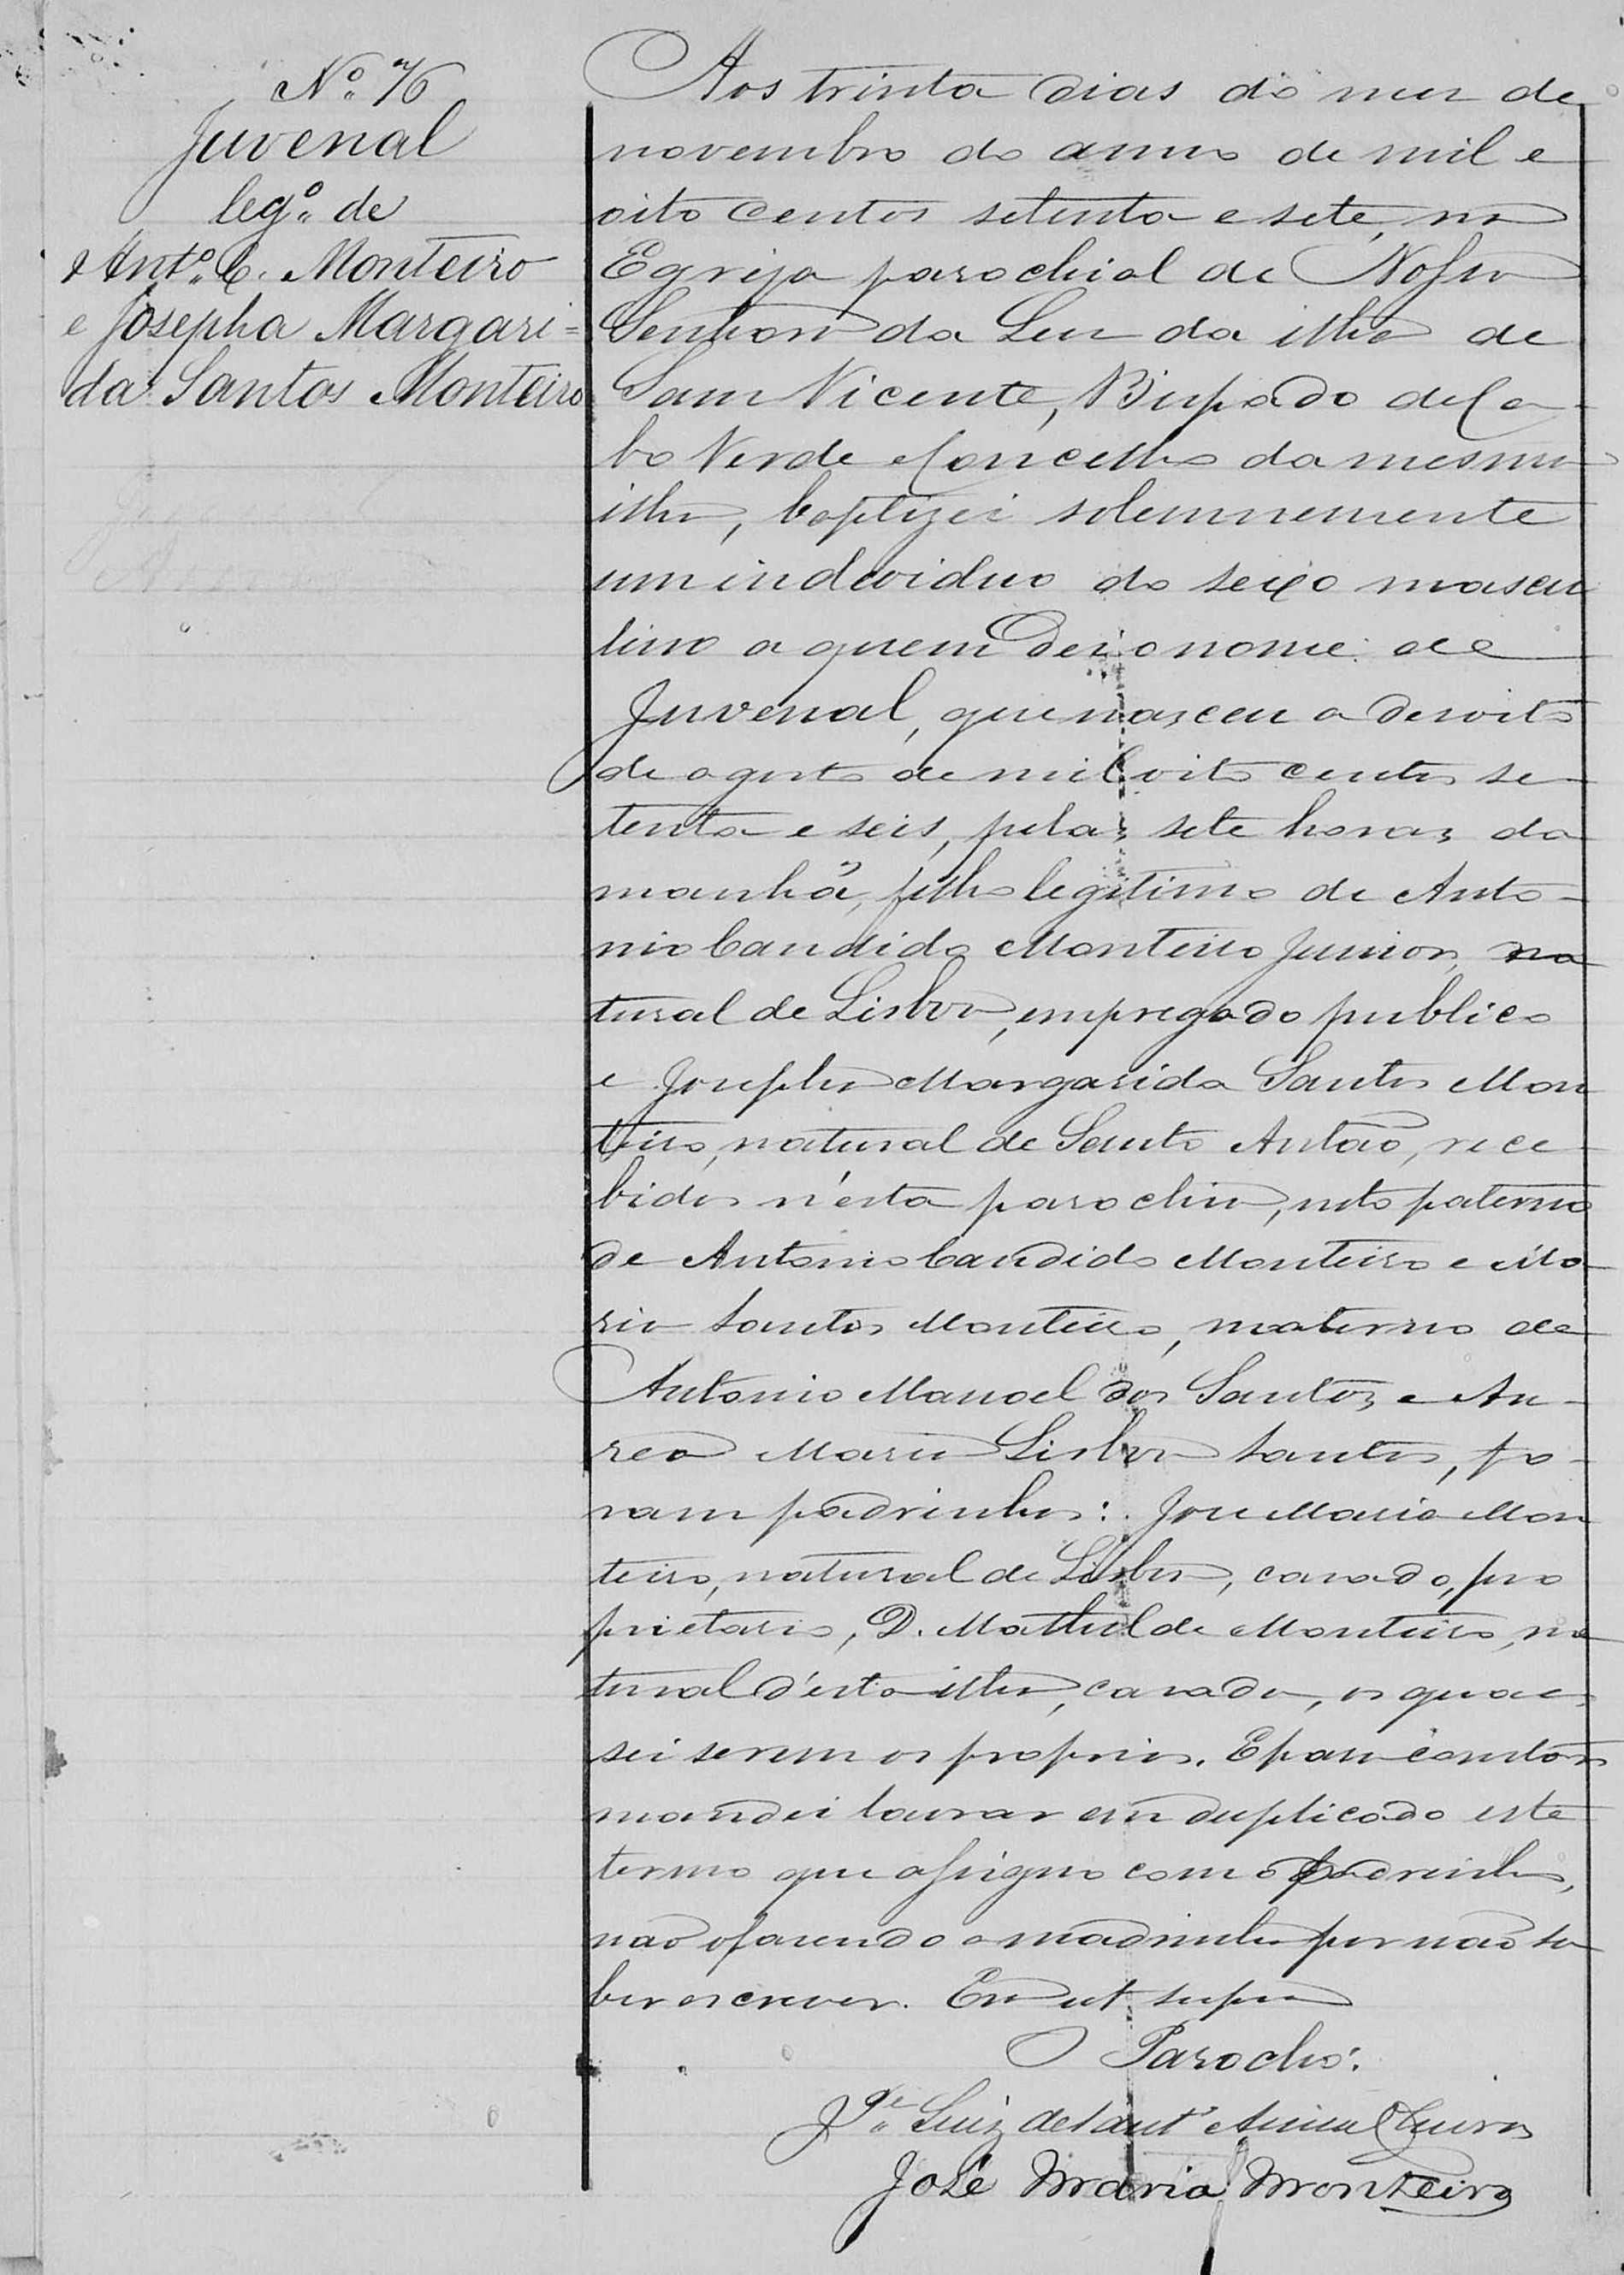 Nº 76
Juvenal
legº de
Antº C. Monteiro
e Josepha Margari=
da Santos Monteiro
Aos trinta dias do mez de
novembro do anno de mil e
oito centos setenta e sete, na
Egreja parochial de Nossa
Senhora da Luz da ilha de
Sam Vicente, Bispado de Ca-
bo Verde Concelho da mesma
ilha, baptizei solemnemente
um individuo do sexo mascu
lino a quem dei o nome de
Juvenal, que nasceu a desoito
de agosto de mil oito centos se-
tenta e seis, pelas sete horas da
manhã, filho legitimo de Anto-
nio Candido Monteiro Junior, na
tural de Lisboa, empregado publico
e Josepha Margarida Santos Mon
teiro, natural de Santo Antão, rece-
bidos n'esta parochia, neto paterno
de Antonio Candido Monteiro e Ma-
ria Santos Monteiro, materno de
Antonio Manoel dos Santos e Au-
rea Maria Lisboa Santos, fo-
ram padrinhos: José Maria Mon
teiro, natural de Lisboa, casado, pro
prietario, D. Mathilde Monteiro, na
tural d'esta ilha, casada, os quaes
sei serem os proprios. E para constar
mandei lavrar em duplicado este
termo que assigno com o padrinho,
não o fasendo a madrinha por não sa
ber escrever. Era ut supra
O Parocho:
Luiz
José Maria Monteiro